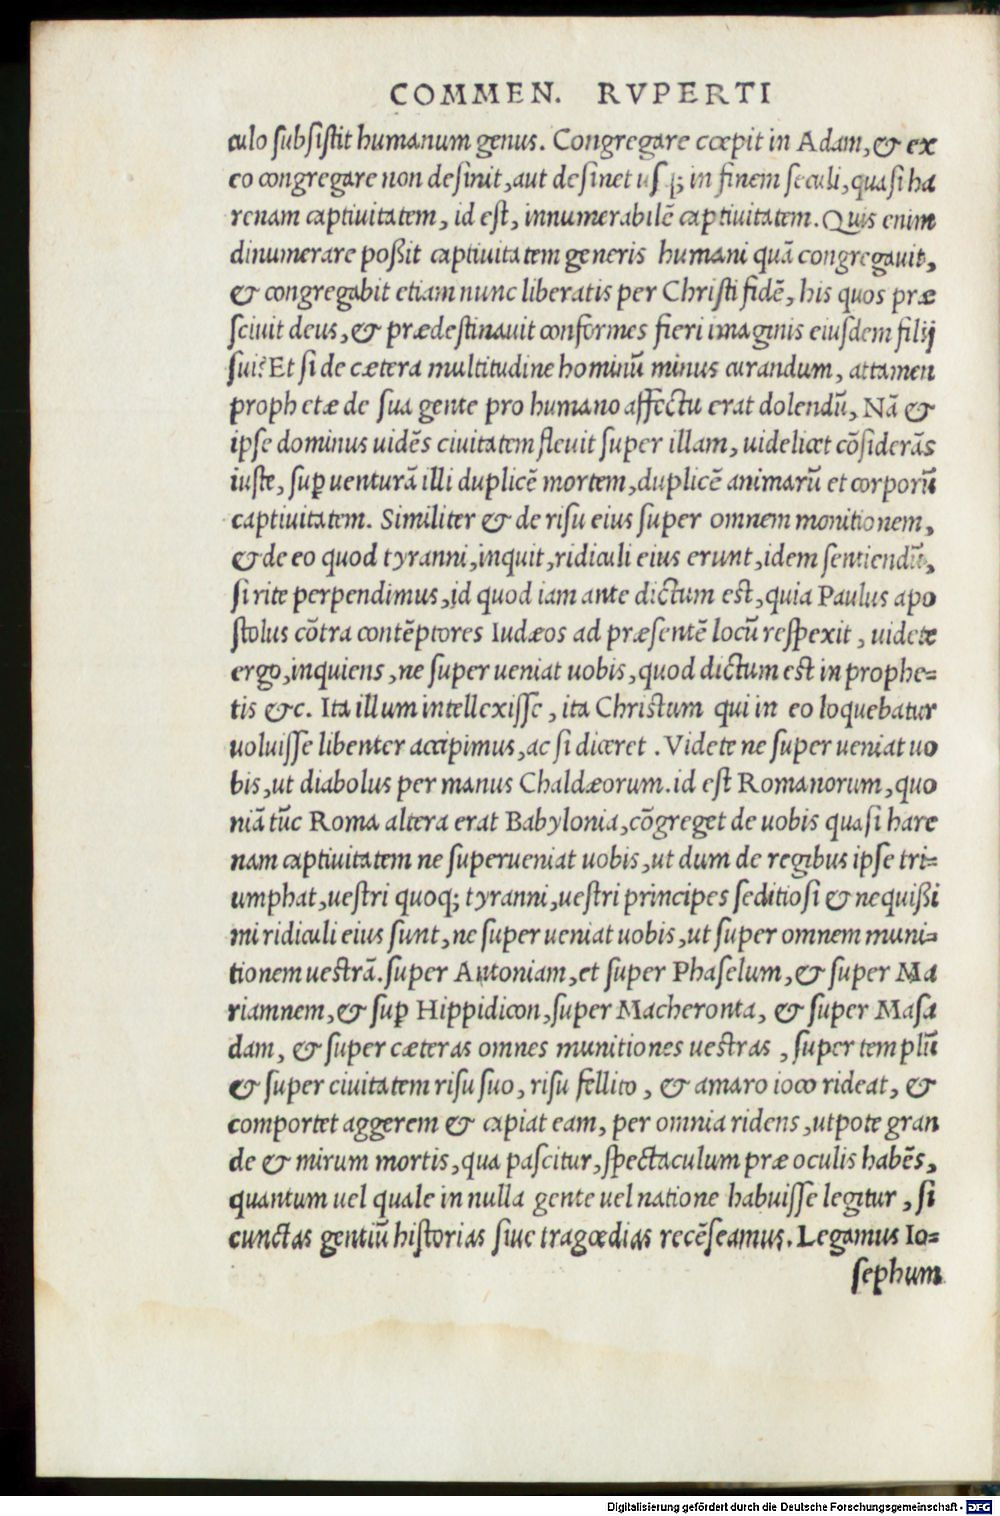 COMMEN. RVPERTI
culo subsistit humanum genus. Congregare cœpit in Adam, & ex
eo congregare non desinit, aut desinet usq; in finem seculi, quasi ha
renam captiuitatem, id est, innumerabilē captiuitatem. Quis enim
dinumerare poßit captiuitatem generis humani quā congregauit,
& congregabit etiam nunc liberatis per Christi fidē, his quos præ
sciuit deus, & prædestinauit conformes fieri imaginis eiusdem filij
sui? Et si de cætera multitudine hominū minus curandum, attamen
prophetæ de sua gente pro humano affectu erat dolendū, Nā &
ipse dominus uidēs ciuitatem fleuit super illam, uidelicet cōsiderās
iuste, suꝑuenturā illi duplicē mortem, duplicē animarū et corporū
captiuitatem. Similiter & de risu eius super omnem monitionem,
& de eo quod tyranni, inquit, ridiculi eius erunt, idem sentiendū,
si rite perpendimus, id quod iam ante dictum est, quia Paulus apo
stolus cōtra contēptores Iudæos ad præsentē locū respexit, uidete
ergo, inquiens, ne superueniat uobis, quod dictum est in prophe=
tis &c. Ita illum intellexisse, ita Christum qui in eo loquebatur
uoluisse libenter accipimus, ac si diceret. Videte ne superueniat uo
bis, ut diabolus per manus Chaldæorum. id est Romanorum, quo
niā tūc Roma altera erat Babylonia, cōgreget de uobis quasi hare
nam captiuitatem ne superueniat uobis, ut dum de regibus ipse tri=
umphat, uestri quoq; tyranni, uestri principes seditiosi & nequißi
mi ridiculi eius sunt, ne superueniat uobis, ut super omnem muni=
tionem uestrā. super Antoniam, et super Phaselum, & super Ma
riamnem, & suꝑ Hippidicon, super Macheronta, & super Masa
dam, & super cæteras omnes munitiones uestras, super templū
& super ciuitatem risu suo, risu felleo, & amaro ioco rideat, &
comportet aggerem & capiat eam, per omnia ridens, utpote gran
de & mirum mortis, qua pascitur, spectaculum præ oculis habēs,
quantum uel quale in nulla gente uel natione habuisse legitur, si
cunctas gentiū historias siue tragœdias recēseamus. Legamus Io=
sephum
Digitalisierung gefördert durch die Deutsche Forschungsgemeinschaft - DFG